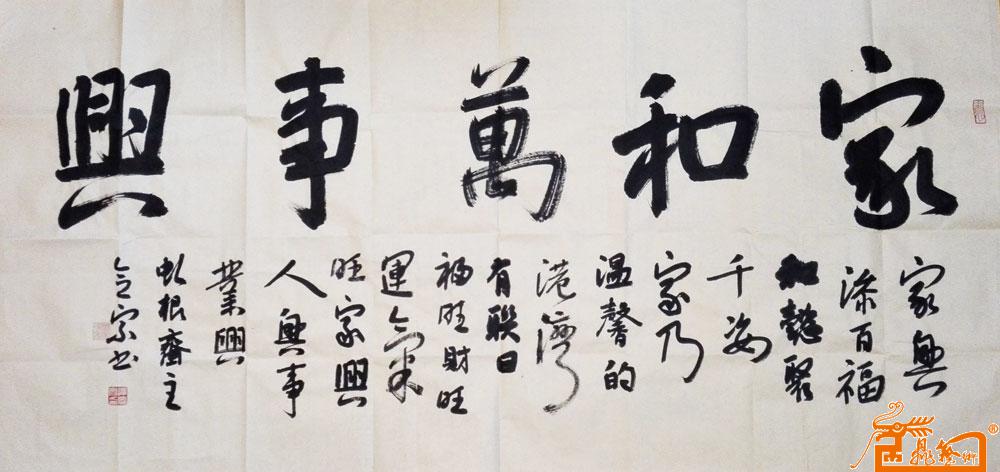 家和萬事興
家無
添百福
和懿聚
千姿
家乃
温馨的
港灣
有聯曰
福旺財旺
運氣
旺家興
人興事
業興
虬根齋主
令宗书